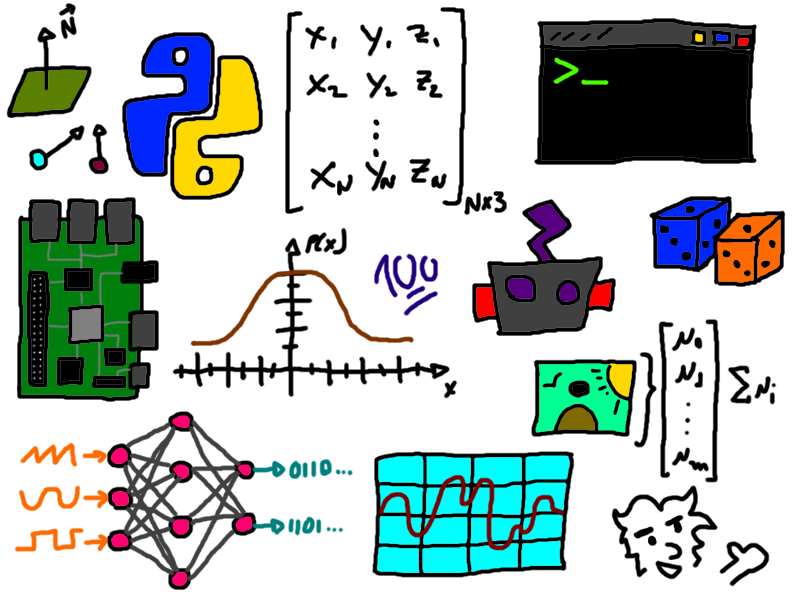 N
x₁ y₁ z₁
x₂ y₂ z₂
⋮
x_N y_N z_N
N×3
>_
P(x)
100
x
μ₀
μ₁
⋮
μ_m
Σμᵢ
0110...
1101...